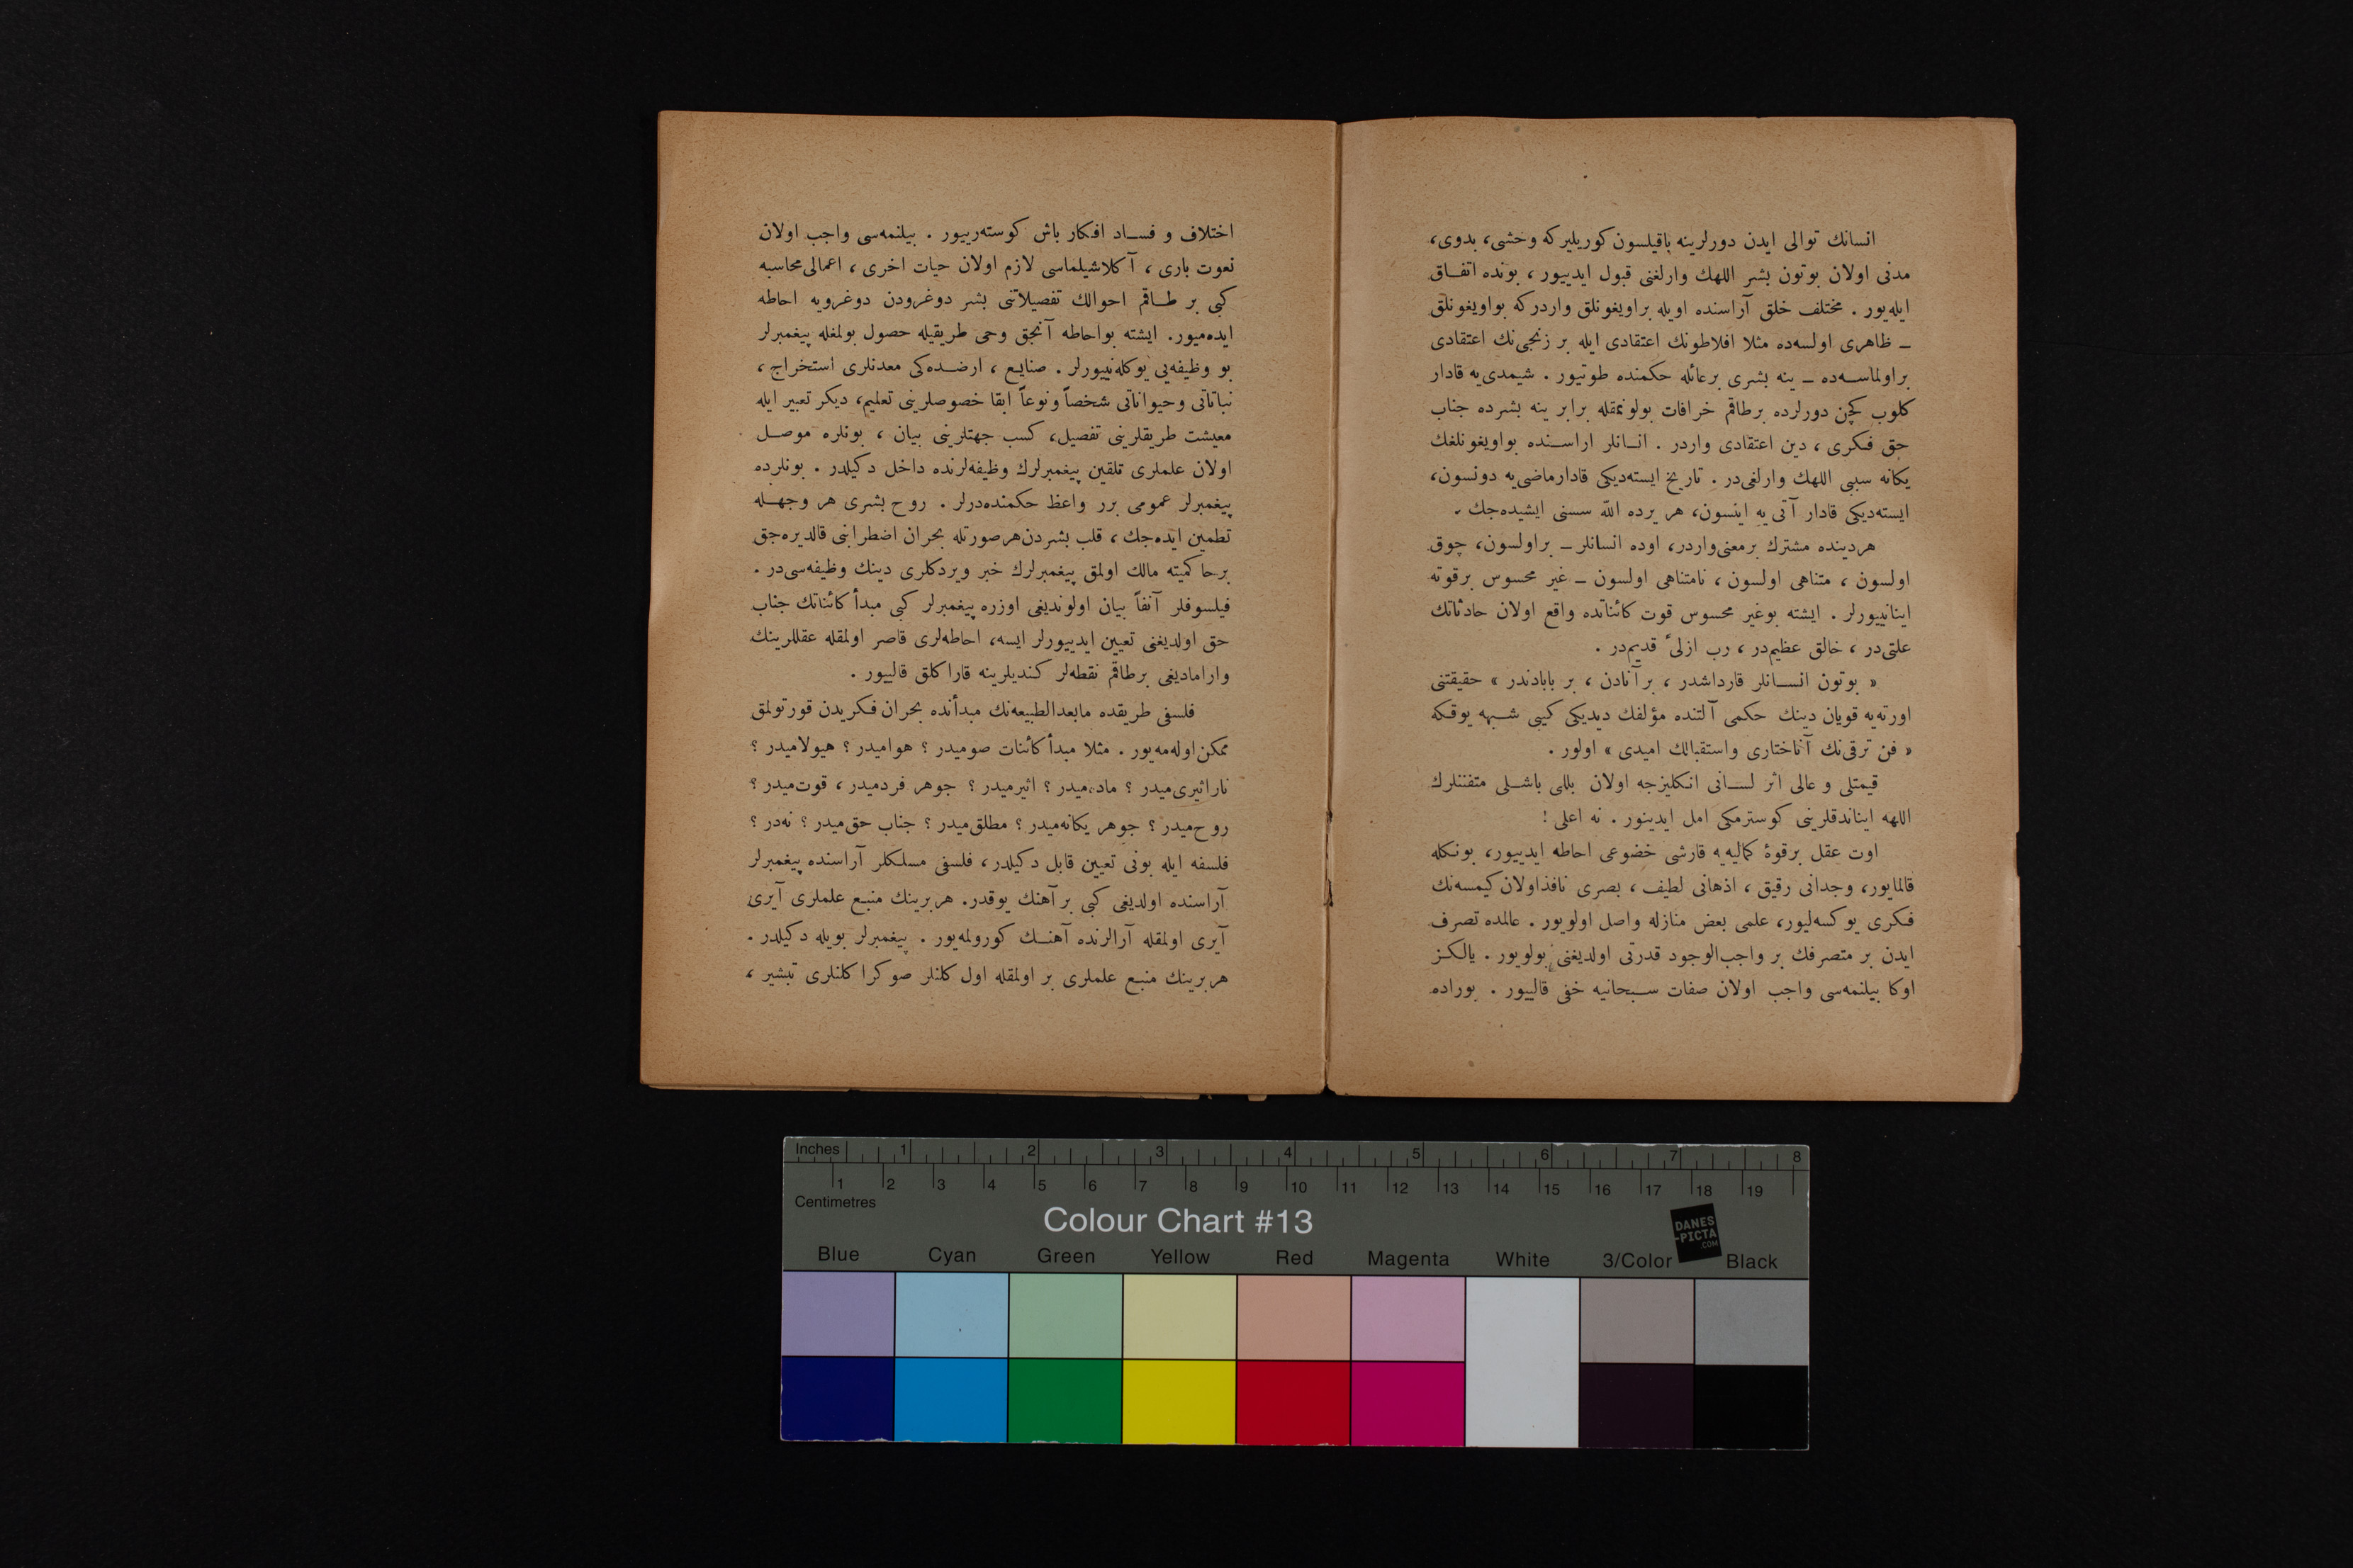 انسانك توالی ایدن دورلرینه باقیلسون كوریلیركه وحشی، بدوی،
مدنی اولان بوتون بشر اللهك وارلغنی قبول ایدییور ، بونده اتفـاق
ایله‌یور . مختلف خلق آراسنده اویله براویغونلق واردركه بواویغونلق
ـ ظاهری اولسه‌ده مثلا افلاطونك اعتقادی ایله بر زنجی‌نك اعتقادی
براولماسـه‌ده ـ ینه بشری برعائله حكمنده طوتیور . شیمدی‌یه قادار
كلوب كچن دورلرده برطاقم خرافات بولونمقله برابر ینه بشرده جناب
حق فكری ، دین اعتقادی واردر . انسانلر اراسـنده بواویغونلغك
یكانه سببی اللهك وارلغی‌در . تاریخ ایسته‌دیكی قادارماضی‌یه دونسون،
ایسته‌دیكی قادار آتی‌یه اینسون، هر یرده اللّه سسنی ایشیده‌جك .
هردینده مشترك برمعنی‌واردر، اوده انسانلر ـ براولسون، چوق
اولسون ، متناهی اولسون ، نامتناهی اولسون ـ غیر محسوس برقوته
اینانییورلر . ایشته بوغیر محسوس قوت كائناتده واقع اولان حادثاتك
علتی‌در ، خالق عظیم‌در ، رب ازلیٔ قدیم‌در .
« بوتون انسـانلر قارداشدر ، برآنادن ، بر بابادندر » حقیقتنی
اورته‌یه قویان دینك حكمی آلتنده مؤلفك دیدیكی كیبی شـبهه یوقكه
« فن ترقی‌نك آناختاری واستقبالك امیدی » اولور .
قیمتلی و عالی اثر لسـانی انكلیزجه اولان بللی باشـلی متفننلرك
اللهه ایناندقلرینی كوسترمكی امل ایدینور . نه اعلی !
اوت عقل برقوهٔ كمالیه‌یه قارشی خضوعی احاطه ایدییور، بونكله
قالمایور، وجدانی رقیق ، اذهانی لطیف ، بصری نافذاولان كیمسه‌نك
فكری یوكسه‌لیور، علمی بعض منازله واصل اولویور . عالمده تصرف
ایدن بر متصرفك بر واجب‌الوجود قدرتی اولدیغنی بولویور . یالكـز
اوكا بیلنمه‌سی واجب اولان صفات سـبحانیه خفی قالییور . بوراده
اختلاف و فسـاد افكار باش كوسته‌رییور . بیلنمه‌سی واجب اولان
نعوت باری ، آكلاشیلماسی لازم اولان حیات اخری ، اعمالی‌محاسبه
كبی بر طـاقم احوالك تفصیلاتنی بشر دوغرودن دوغرویه احاطه
ایده‌میور. ایشته بواحاطه آنجق وحی طریقیله حصول بولمغله پیغمبرلر
بو وظیفه‌یی یوكله‌نییورلر . صنایـع ، ارضـده‌كی معدنلری استخراج ،
نباتاتی وحیواناتی شخصاً ونوعاً ابقا خصوصلرینی تعلیم، دیكر تعبیر ایله
معیشت طریقلرینی تفصیل، كسب جهتلرینی بیان ، بونلره موصـل
اولان علملری تلقین پیغمبرلرك وظیفه‌لرنده داخل دكیلدر . بونلرده
پیغمبرلر عمومی برر واعظ حكمنده‌درلر . روح بشری هر وجهـله
تطمین ایده‌جك ، قلب بشردن‌هرصورتله بحران اضطرابنی قالدیره‌جق
برحاكمیته مالك اولمق پیغمبرلرك خبر ویردكلری دینك وظیفه‌سی‌در .
فیلسوفلر آنفاً بیان اولوندیغی اوزره پیغمبرلر كبی مبدأ كائناتك جناب
حق اولدیغنی تعیین ایدییورلر ایسه، احاطه‌لری قاصر اولمقله عقللرینك
وارامادیغی برطاقم نقطه‌لر كندیلرینه قاراكلق قالییور .
فلسفی طریقده مابعدالطبیعه‌نك مبدأنده بحران فـكریدن قورتولمق
ممكن‌اوله‌مه‌یور . مثلا مبدأ كائنات صومیدر ؟ هوامیدر ؟ هیولامیدر ؟
ناراثیری‌میدر ؟ ماده‌میدر ؟ اثیرمیدر ؟ جوهر فردمیدر ، قوت‌میدر ؟
روح‌میدر ؟ جوهر یكانه‌میدر ؟ مطلق‌میدر ؟ جناب حق‌میدر ؟ نه‌در ؟
فلسفه ایله بونی تعیین قابل دكیلدر ، فلسفی مسلكلر آراسنده پیغمبرلر
آراسنده اولدیغی كبی بر آهنك یوقدر. هربرینك منبـع علملری آیری
آیری اولمقله آرالرنده آهنـك كورولمه‌یور . پیغمبرلر بویله دكیلدر .
هربرینك منبـع علملری بر اولمقله اول كلنلر صوكرا كلنلری تبشیر ،
Inches 1 2 3 4 5 6 7 8
1 2 3 4 5 6 7 8 9 10 11 12 13 14 15 16 17 18 19
Centimetres
Colour Chart #13
DANES
-PICTA
.COM
Blue Cyan Green Yellow Red Magenta White 3/Color Black